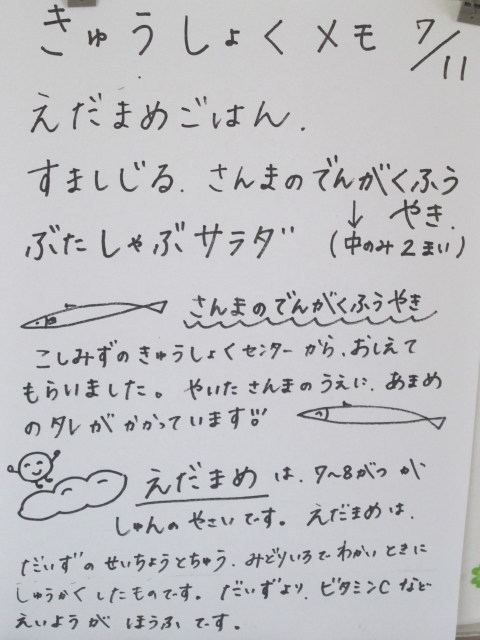 きゅうしょくメモ 7/11
えだまめごはん.
すましじる. さんまのでんがくふう
やき.
ぶたしゃぶサラダ (中のみ2まい)
さんまのでんがくふうやき
こしみずのきゅうしょくセンターから、おしえて
もらいました。 やいたさんまのうえに、あまめ
のタレがかかっています!!
えだまめは、7~8がつが
しゅんのやさいです。 えだまめは、
だいずのせいちょうとちゅう、みどりいろでわかいときに
しゅうかくしたものです。 だいずより、ビタミンCなど
えいようがほうふです。